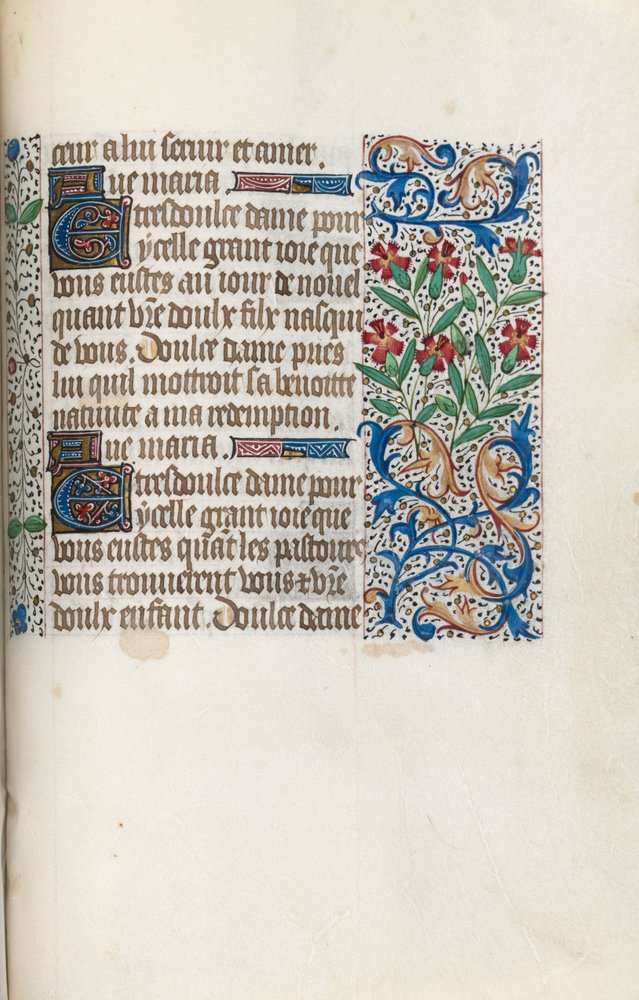 cueur a lui seruir et amer.
Aue maria.
E tresdoulce dame pour
ycelle grant ioie que
vous eustes au iour de nouel
quant vr̃e doulx filx nasqui
de vous. Doulce dame pries
lui quil mottroit sa benoitte
natiuite a ma redemption.
Aue maria.
E tresdoulce dame pour
ycelle grant ioie que
vous eustes quãt les pastours
vous trouuerent vous & vr̃e
doulx enfant. Doulce dame